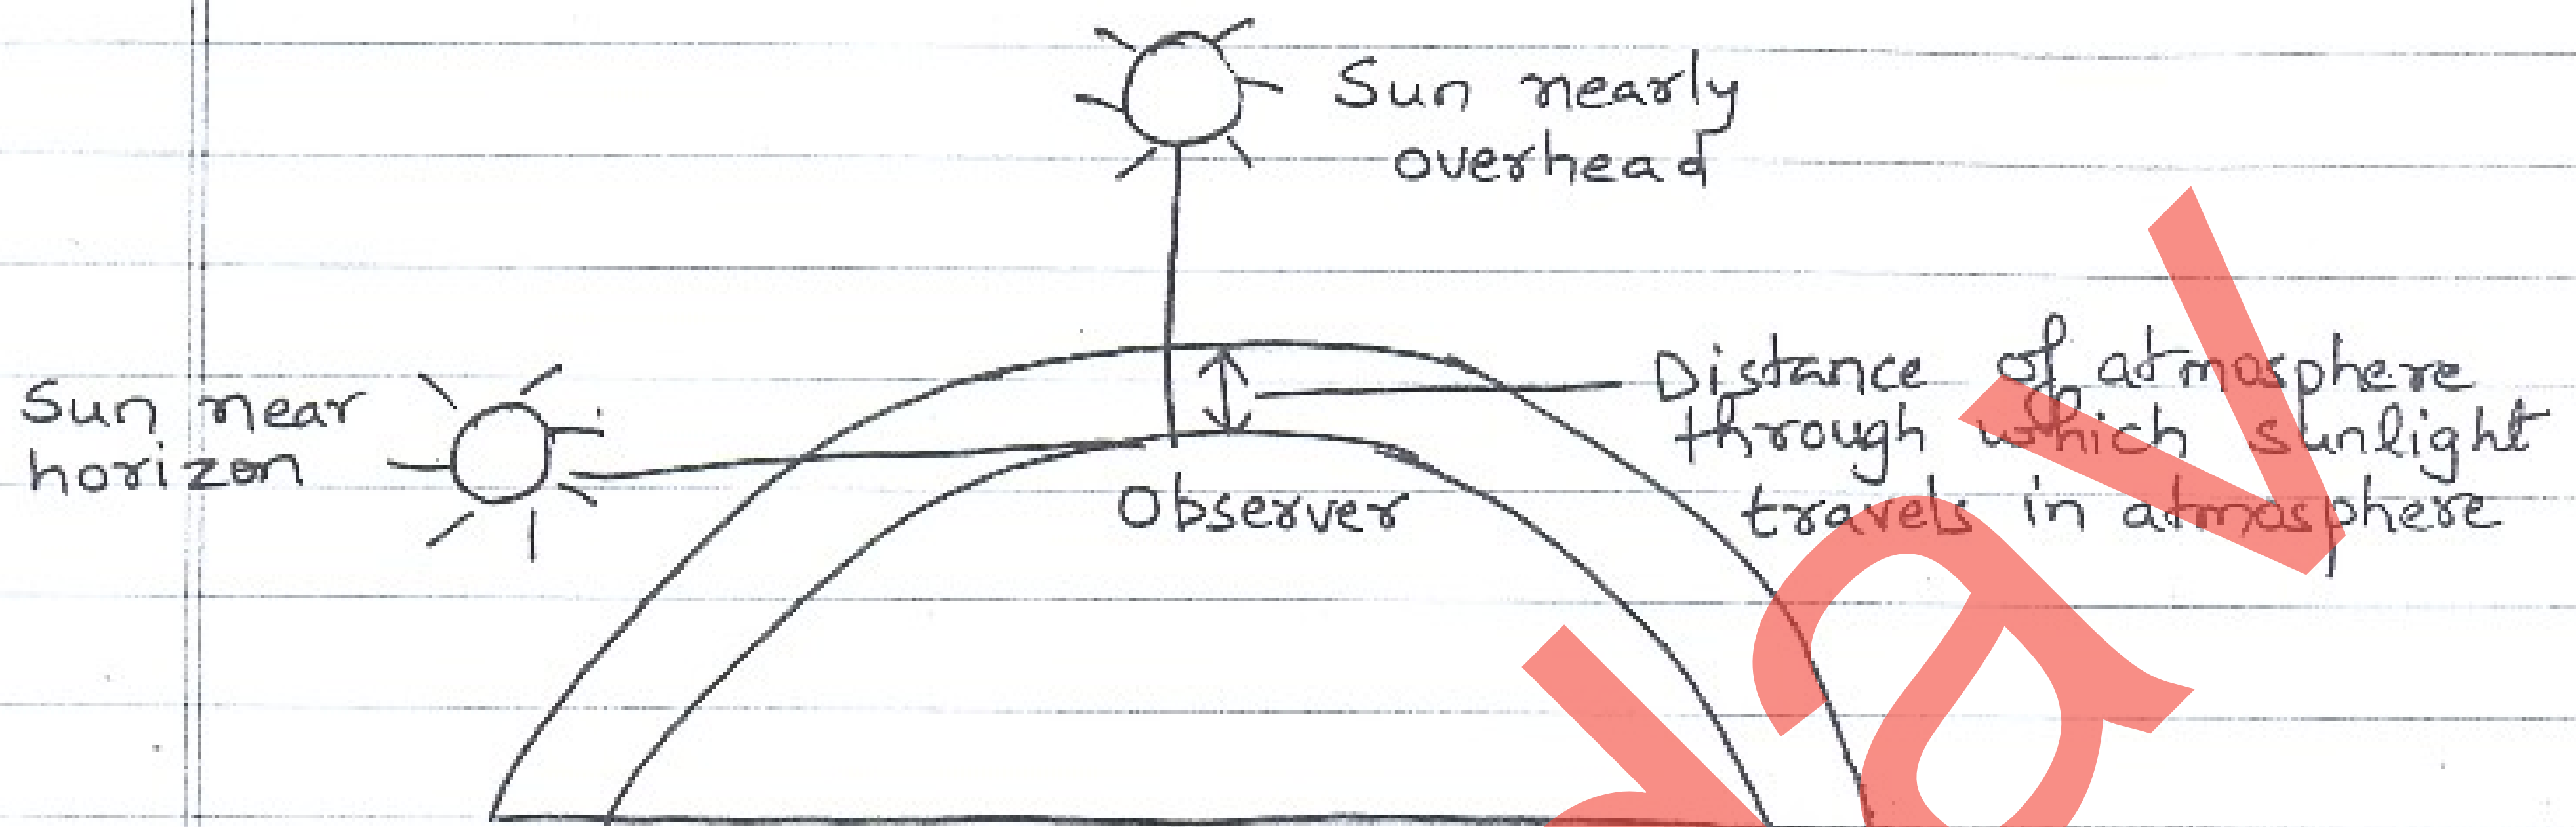 Sun nearly
overhead
Sun near
horizon
Distance of atmosphere
through which sunlight
travels in atmosphere
Observer
av